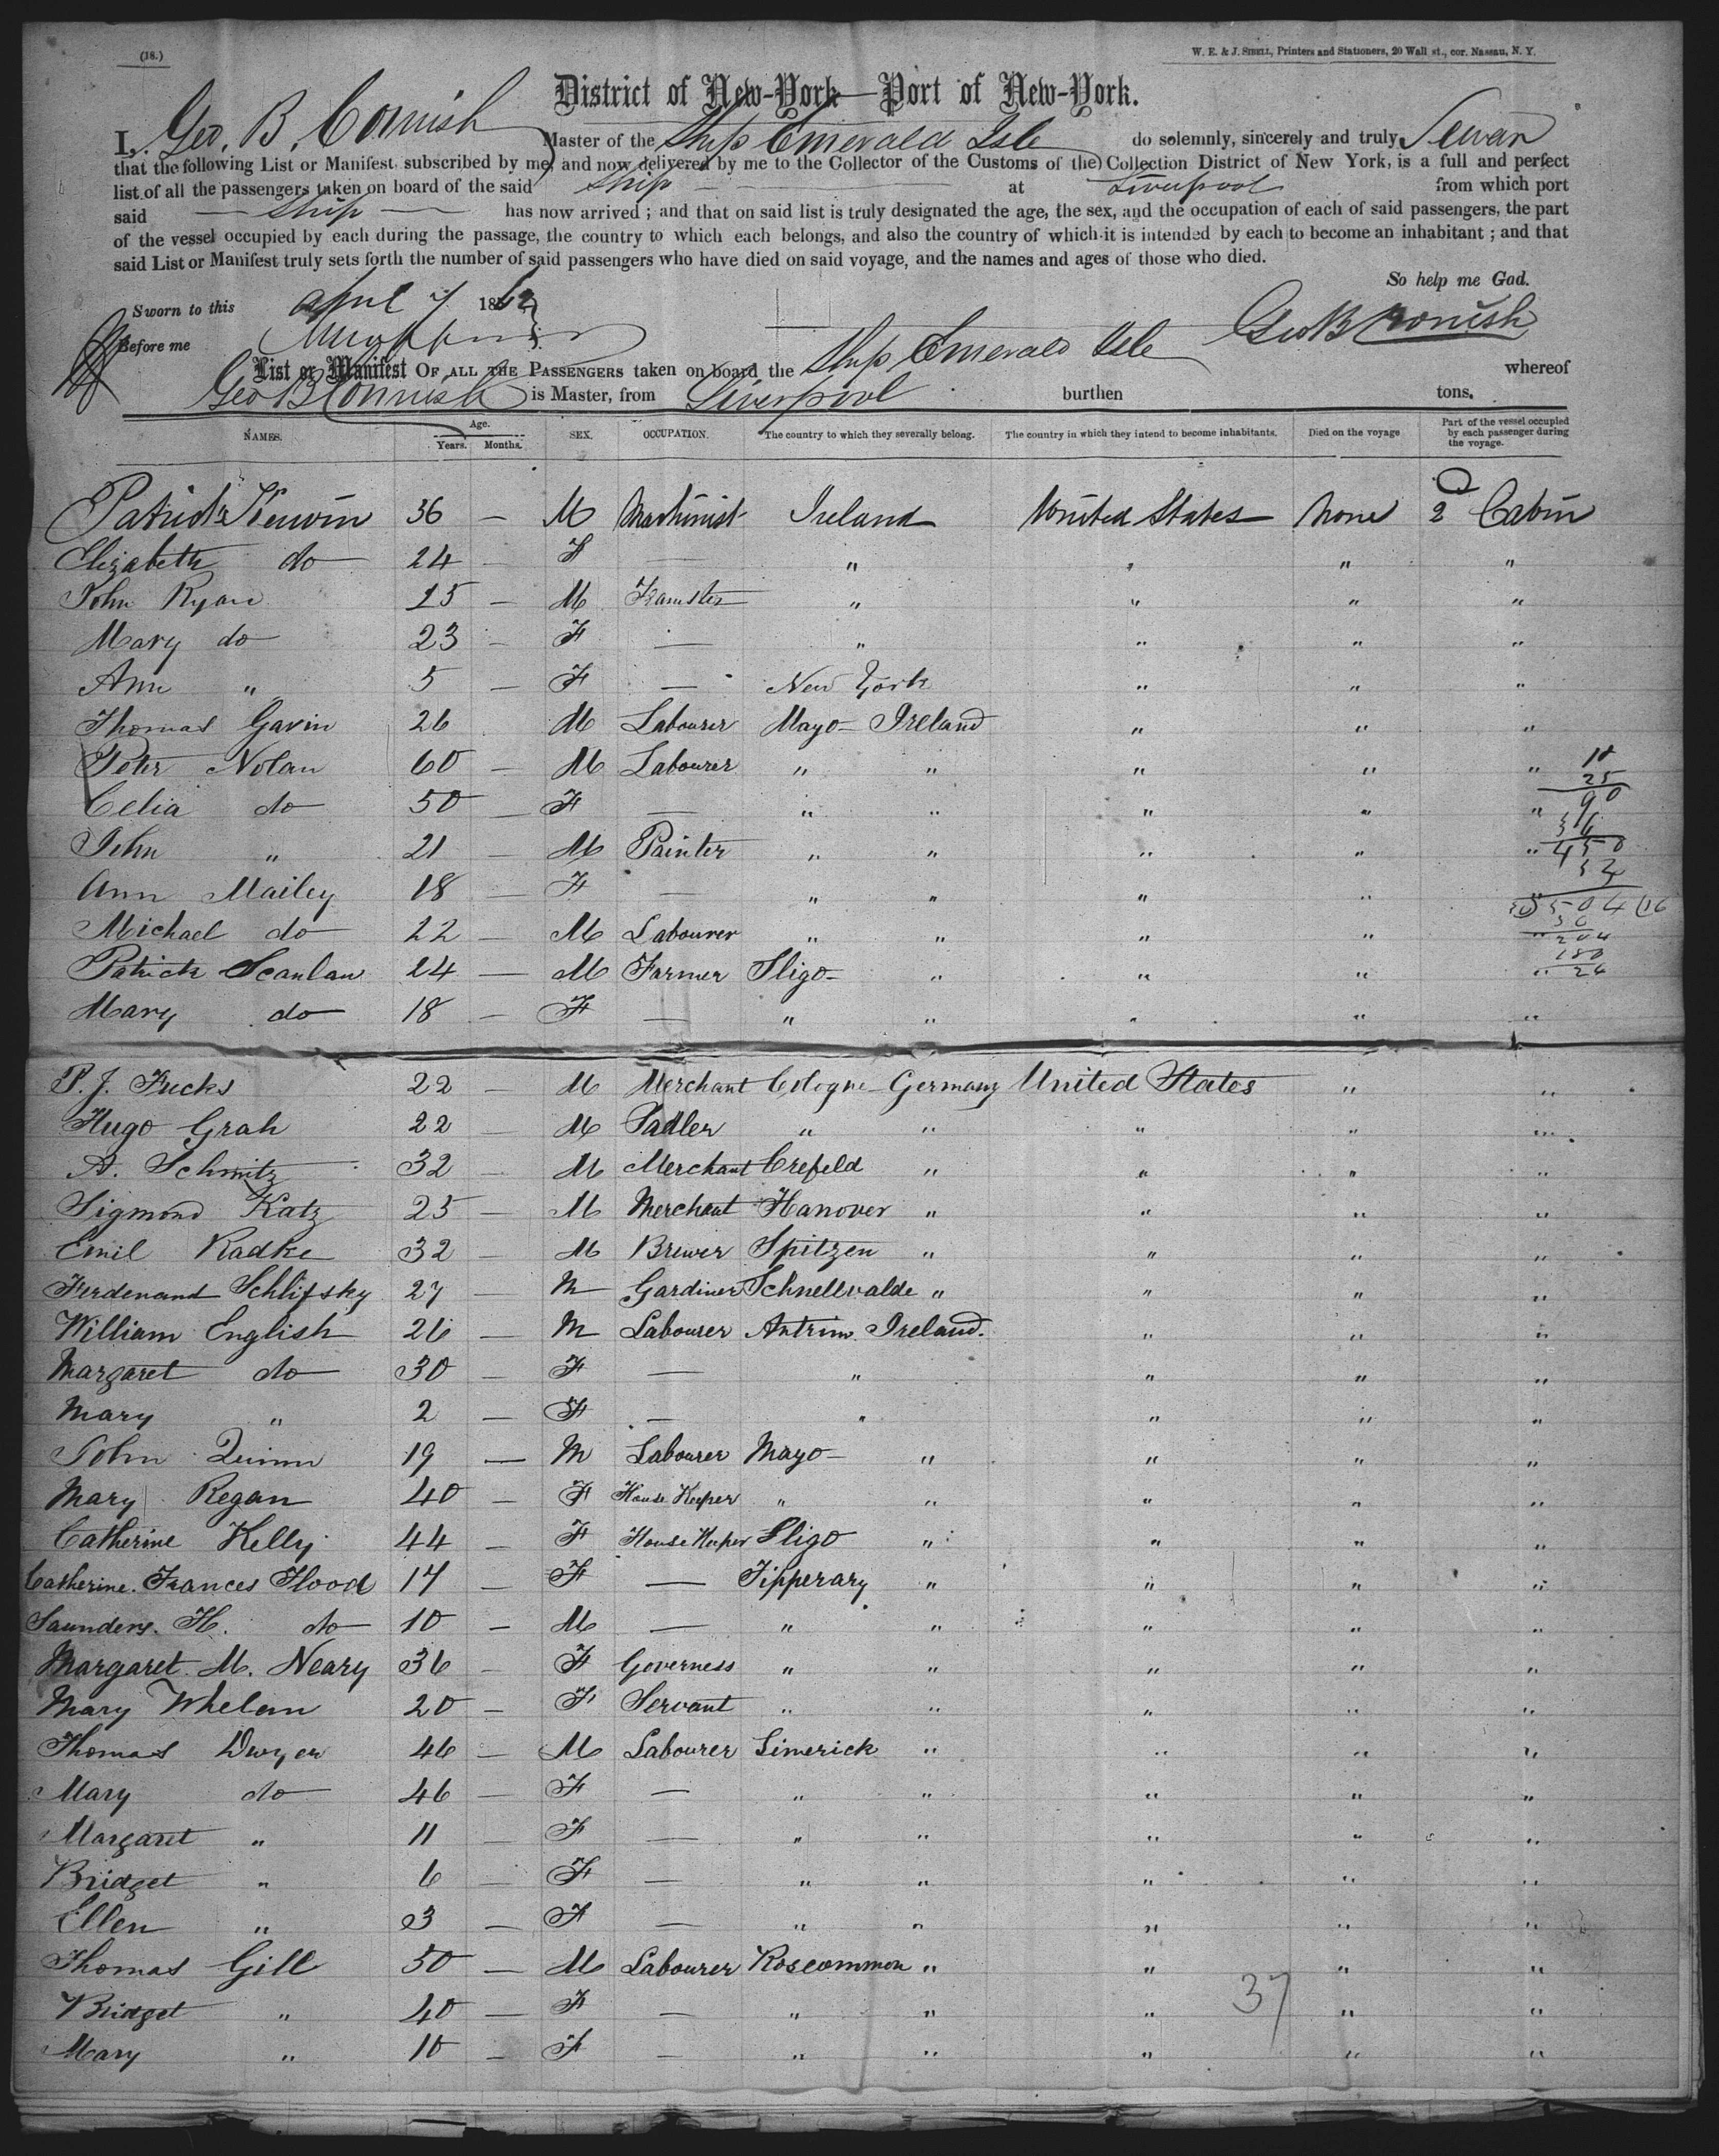 (18.)
W. E. & J. SIBELL, Printers and Stationers, 20 Wall st., cor. Nassau, N. Y.
District of New-York—Port of New-York.
I, Geo. B. Cornish Master of the Ship Emerald Isle do solemnly, sincerely and truly Swear
that the following List or Manifest, subscribed by me, and now delivered by me to the Collector of the Customs of the Collection District of New York, is a full and perfect
list of all the passengers taken on board of the said Ship at Liverpool from which port
said Ship has now arrived; and that on said list is truly designated the age, the sex, and the occupation of each of said passengers, the part
of the vessel occupied by each during the passage, the country to which each belongs, and also the country of which it is intended by each to become an inhabitant; and that
said List or Manifest truly sets forth the number of said passengers who have died on said voyage, and the names and ages of those who died.
So help me God.
Sworn to this April 7 186
Geo B Cornish
Before me
List or Manifest OF ALL THE PASSENGERS taken on board the Ship Emerald Isle whereof
Geo B Cornish is Master, from Liverpool burthen tons.
NAMES. Age. Years. Months. SEX. OCCUPATION. The country to which they severally belong. The country in which they intend to become inhabitants. Died on the voyage Part of the vessel occupied by each passenger during the voyage.
Patrick Kerwin 36 — M Machinist Ireland United States None 2 Cabin
Elizabeth do 24 — F — " " " "
John Ryan 25 — M Teamster " " " "
Mary do 23 — F — " " " "
Ann " 5 — F — New York " " "
Thomas Gavin 26 M Labourer Mayo — Ireland " " "
Peter Nolan 60 — M Labourer " " " " "
Celia do 50 — F — " " " " "
John " 21 — M Painter " " " " "
Ann Mailey 18 — F — " " " " "
Michael do 22 — M Labourer " " " " "
Patrick Scanlan 24 — M Farmer Sligo — " " " "
Mary do 18 — F — " " " " "
10
25
90
450
504 (16
204
180
24
P. J. Fucks 22 — M Merchant Cologne Germany United States " "
Hugo Grah 22 — M Sadler " " " " "
A. Schmitz 32 — M Merchant Crefeld " " " "
Sigmond Katz 25 — M Merchant Hanover " " " "
Emil Radke 32 — M Brewer Spitzen " " " "
Ferdenand Schlifsky 27 — M Gardiner Schnellvalde " " " "
William English 26 — M Labourer Antrim Ireland. " " "
Margaret do 30 — F — " " " "
Mary " 2 — F — " " " "
John Quinn 19 — M Labourer Mayo — " " " "
Mary Regan 40 — F House Keeper " " " " "
Catherine Kelly 44 — F House Keeper Sligo " " " "
Catherine. Frances Flood 17 — F — Tipperary " " " "
Saunders. H. do 10 — M — " " " " "
Margaret. M. Neary 36 — F Governess " " " " "
Mary Whelan 20 — F Servant " " " " "
Thomas Dwyer 46 — M Labourer Limerick " " " "
Mary do 46 — F — " " " " "
Margaret " 11 — F — " " " " "
Bridget " 6 — F — " " " " "
Ellen " 3 — F — " " " " "
Thomas Gill 50 — M Labourer Roscommon " " " "
Bridget " 40 — F — " " " " "
Mary " 10 — F — " " " " "
37